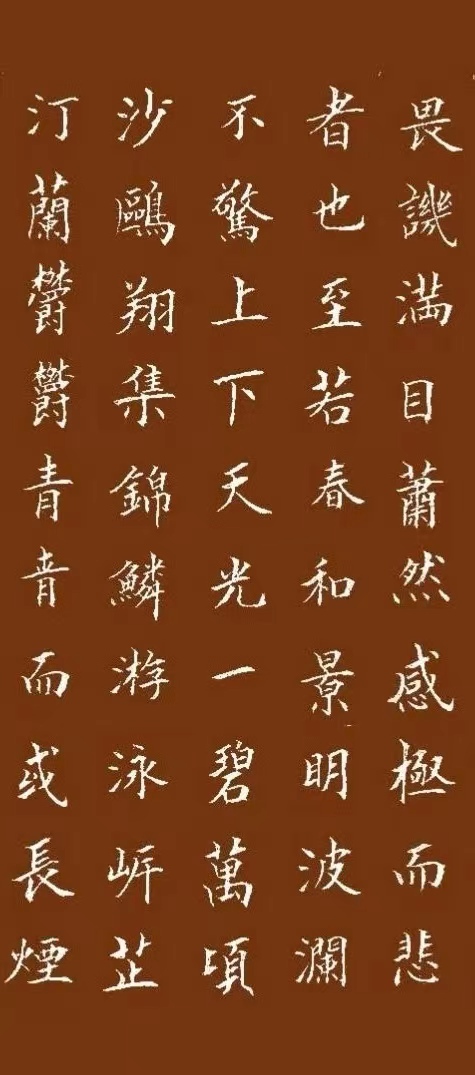 畏譏滿目蕭然感極而悲
者也至若春和景明波瀾
不驚上下天光一碧萬頃
沙鷗翔集錦鱗游泳岸芷
汀蘭鬱鬱青青而或長煙